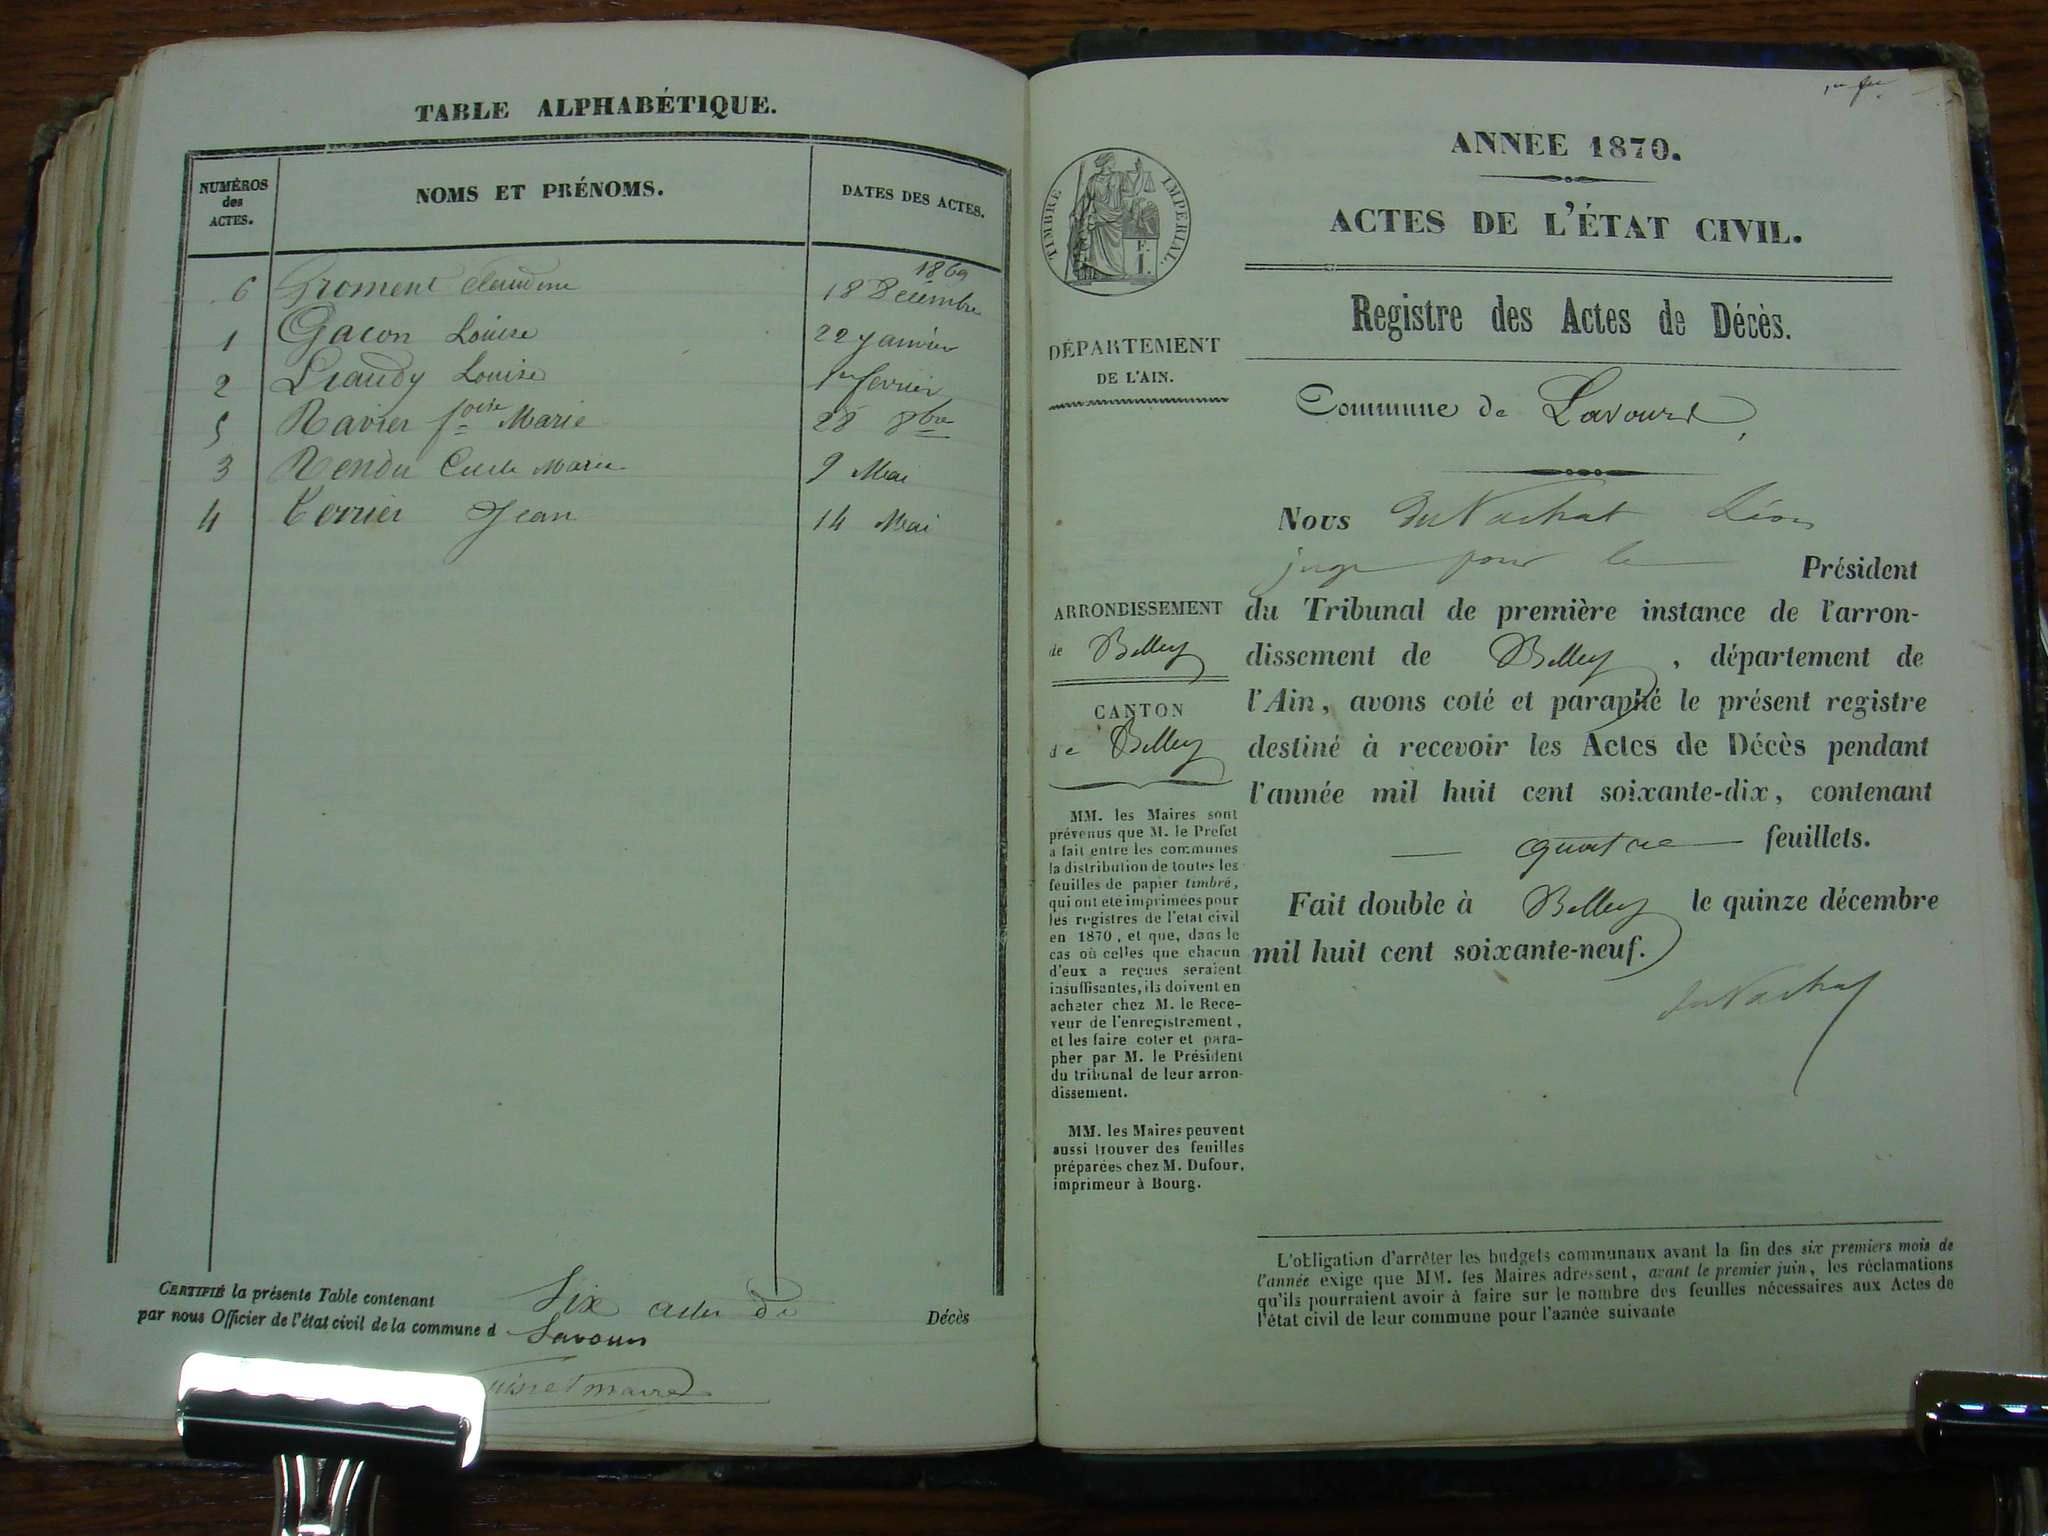 TABLE ALPHABÉTIQUE.
NUMÉROS
des
ACTES.
NOMS ET PRÉNOMS.
DATES DES ACTES.
1869
6 Froment Claudine 18 Décembre
1 Gacon Louise 22 janvier
2 Liaudy Louise 1er fevrier
5 Ravier foise Marie 28 8bre
3 Rendu Marie 9 Mai
4 Terrier Jean 14 Mai
CERTIFIÉ la présente Table contenant Six actes de Décès
par nous Officier de l'état civil de la commune d Lavours
maire
1er
ANNÉE 1870.
ACTES DE L'ÉTAT CIVIL.
Registre des Actes de Décès.
Commune de Lavours,
TIMBRE IMPÉRIAL.
DÉPARTEMENT
DE L'AIN.
ARRONDISSEMENT
de Belley
CANTON
de Belley
MM. les Maires sont
prévenus que M. le Préfet
a fait entre les communes
la distribution de toutes les
feuilles de papier timbré,
qui ont été imprimées pour
les registres de l'état civil
en 1870, et que, dans le
cas où celles que chacun
d'eux a reçues seraient
insuffisantes, ils doivent en
acheter chez M. le Rece-
veur de l'enregistrement,
et les faire coter et para-
pher par M. le Président
du tribunal de leur arron-
dissement.
MM. les Maires peuvent
aussi trouver des feuilles
préparées chez M. Dufour,
imprimeur à Bourg.
Nous du Nachat Léon
juge pour le Président
du Tribunal de première instance de l'arron-
dissement de Belley, département de
l'Ain, avons coté et paraphé le présent registre
destiné à recevoir les Actes de Décès pendant
l'année mil huit cent soixante-dix, contenant
quatre feuillets.
Fait double à Belley le quinze décembre
mil huit cent soixante-neuf.
du Nachat
L'obligation d'arrêter les budgets communaux avant la fin des six premiers mois de
l'année exige que MM. les Maires adressent, avant le premier juin, les réclamations
qu'ils pourraient avoir à faire sur le nombre des feuilles nécessaires aux Actes de
l'état civil de leur commune pour l'année suivante